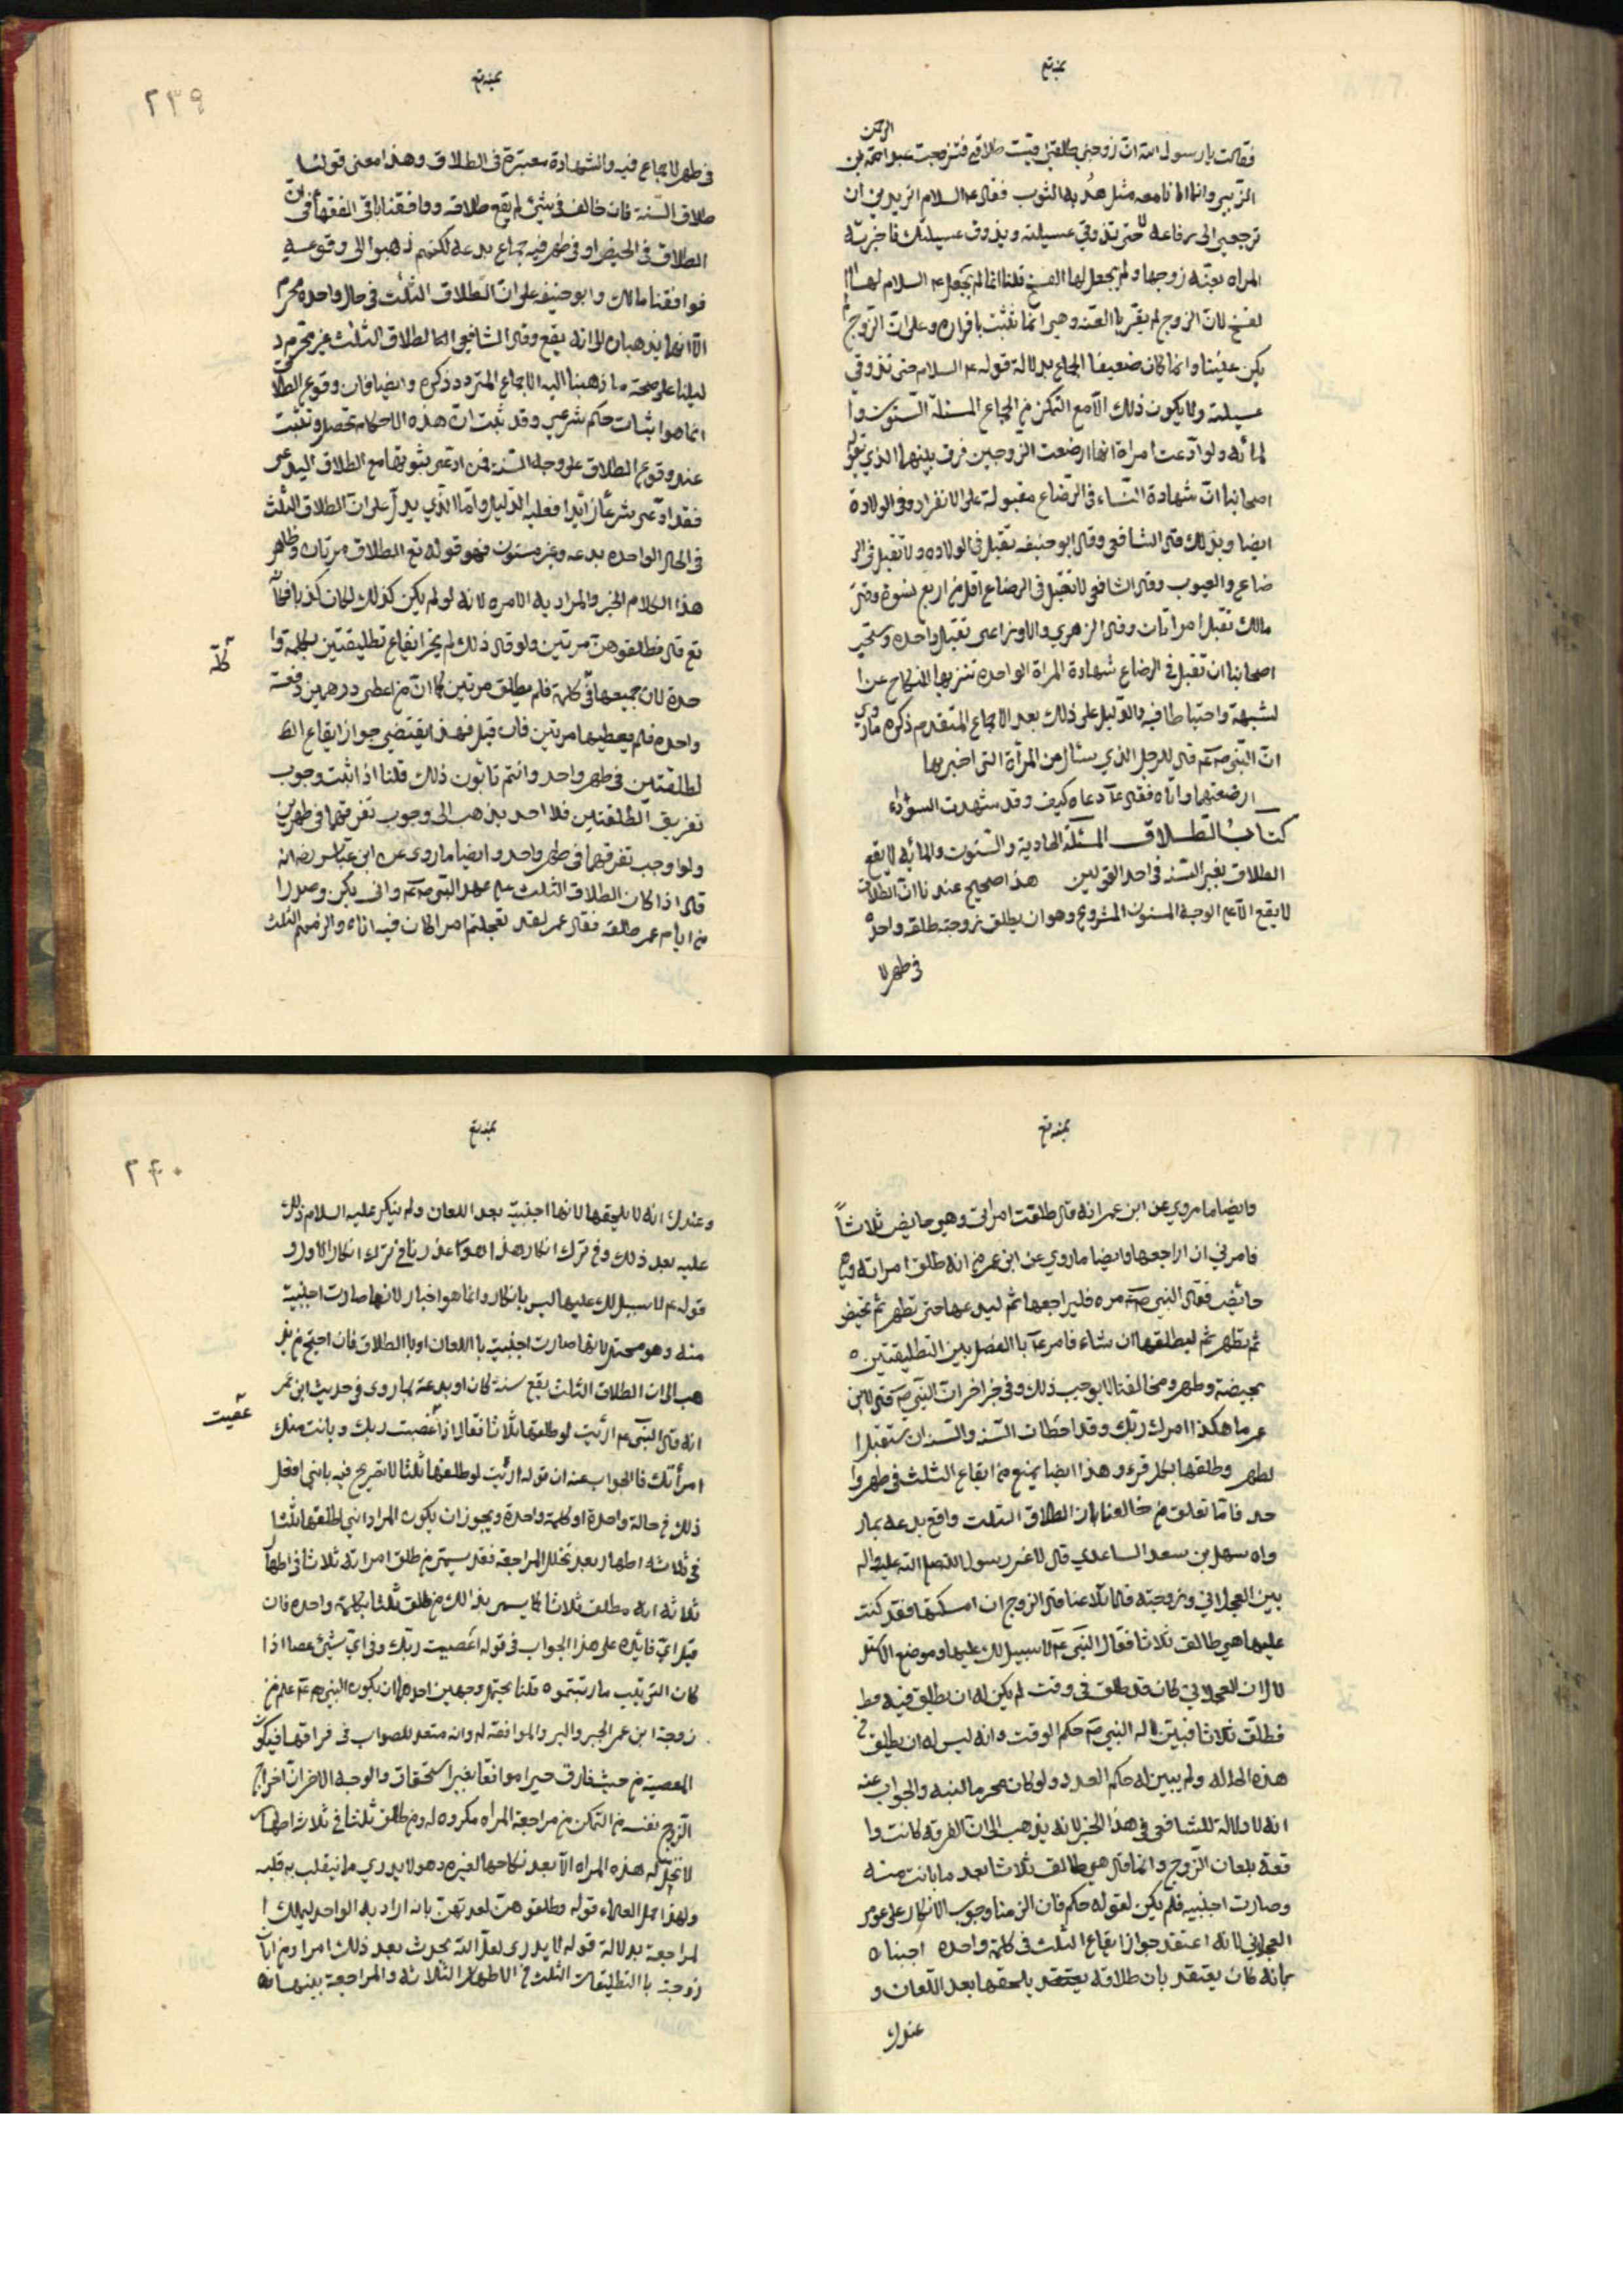 فقالت يا رسول الله ان زوجي طلقني فبت طلاقي فتزوجت عبد الرحمن بن
الزبير وانما معه مثل هدبة الثوب فقال عم السلام اتريدين ان
ترجعي الى رفاعه لا حتى تذوقي عسيلته ويذوق عسيلتك فاخبرته
المراه بعنه زوجها ولم يجعل لها الفسخ قلنا انما لم يجعل عم السلام لها ا
لفسخ لان الزوج لم يقر با العنه وهي انما تثبت باقراره وعلى ان الزوج لم
يكن عنينا وانما كان ضعيف الجماع بدلالة قوله عم السلام حتى تذوقي
عسيلته ولا يكون ذلك الا مع التمكن من الجماع المسئلة الستون وا
لمائه ولو ادعت امراة انها ارضعت الزوجين فرق بينهما الذي يقوله
اصحابنا ان شهادة النساء في الرضاع مقبولة على الانفراد وفي الولادة
ايضا وبذلك قال الشافعي وقال ابو حنيفه تقبل في الولاده ولا تقبل في الر
ضاع والعيوب وقال الشافعي لا تقبل في الرضاع اقل من اربع نسوة وقال
مالك تقبل امراتان وقال الزهري والاوزاعي تقبل واحده ويستحب
اصحابنا ان تقبل في الرضاع شهادة المراة الواحده تنزيها للنكاح عن ا
لشبهة واحتياطا فيه والدليل على ذلك بعد الاجماع المتقدم ذكره ما روي
ان النبي صم قال للرجل الذي سئال عن المرأة التي اخبر بها
ارضعتهما واتاه فقال عم دعاه كيف وقد شهدت السؤداء
كتاب الطلاق المسئلة الحادية والستون والمائه لا يقع
الطلاق بغير السنه في احد القولين هذا صحيح عندنا ان الطلاق
لا يقع الا على الوجه المسنون المشروع وهو ان يطلق زوجته طلقه واحده
في طهر لا
٢٣٩
في طهر لا جماع فيه والشهادة معتبرة في الطلاق وهذا معنى قولنا
طلاق السنة فان خالف في شيئ لم يقع طلاقه ووافقنا باقي الفقهاء في ان
الطلاق في الحيض او في طهر فيه جماع بدعه لكنهم ذهبوا الى وقوعه
فوافقنا مالك وابو حنيفه على ان الطلاق الثلث في حال واحده محرم
الا انهما يذهبان الى انه يقع وقال الشافعي الطلاق الثلث غير محرم د
ليلنا على صحة ما ذهبنا اليه الاجماع المتردد ذكره وايضا فان وقوع الطلاق
انما هو اثبات حكم شرعي وقد ثبت ان هذه الاحكام تحصل وتثبت
عند وقوع الطلاق على وجه السنة فمن ادعى ثبوتها مع الطلاق البدعي
فقد ادعى شرعا زائدا فعليه الدليل واما الذي يدل على ان الطلاق الثلث
في الحال الواحده بدعه وغير مسنون فهو قوله تع الطلاق مرتان وظاهر
هذا الكلام الخبر والمراد به الامر لانه لو لم يكن كذلك لكان كذبا فكأنه
تع قال فطلقوهن مرتين ولو قال ذلك لم يجز ايقاع تطليقتين بكلمة وا
كلمة
حدة لان جميعها في كلمة فلم يطلق مرتين كما ان من اعطى درهمين دفعة
واحده فلم يعطيهما مرتين فان قيل فهذا يقتضي جواز ايقاع الط
لطلقتين في طهر واحد وانتم تابون ذلك قلنا اذا ثبت وجوب
تفريق الطلقتين فلا احد يذهب الى وجوب تفرقهما في طهرين
ولو اوجب تفرقهما في طهر واحد وايضا ما روي عن ابن عباس رض انه
قال اذا كان الطلاق الثلث على عهد النبي صم وابي بكر وصدرا
من ايام عمر طلقه فقال عمر لقد تعجلتم امرا كان فيه اناه والزمهم الثلث
وايضا ما روي عن ابن عمر انه قال طلقت امراتي وهي حايض ثلاثاً
فامرني ان اراجعها وايضا ما روي عن ابن عمر انه طلق امراته وهي
حائض فقال النبي صم مره فليراجعها ثم ليدعها حتى تطهر ثم تحيض
ثم تطهر ثم ليطلقها ان شاء فامر عم با الفصل بين التطليقتين
بحيضة وطهر ومخالفنا لا يوجب ذلك وفي خبر اخر ان النبي صم قال لابن
عمر ما هكذا امرك ربك وقد اخطات السنه والسنه ان تستقبل ا
لطهر وطلقها بكل قرء وهذا ايضا يمنع من ايقاع الثلث في طهر وا
حد فاما تعلق من خالفنا بان الطلاق الثلث واقع بدعه بما ر
واه سهل بن سعد الساعدي قال لاعن رسول الله صلى الله عليه واله
بين العجلاني وزوجته فلما تلاعنا قال الزوج ان امسكتها فقد كذبت
عليها هي طالق ثلاثا فقال النبي عم لا سبيل لك عليها وموضع الاستد
لال ان العجلاني كان قد طلق في وقت لم يكن له ان يطلق فيه فط
فطلق ثلاثا فبين له النبي صم حكم الوقت وانه ليس له ان يطلق في
هذه الحاله ولم يبين له حكم العدد ولو كان محرما لبينه والجواب عنه
انه لا دلالة للشافعي في هذا الخبر لانه يذهب الى ان الفرقه كانت وا
قعة بلعان الزوج وانما قال هي طالق ثلاثا بعد ما بانت منه
وصارت اجنبيه فلم يكن لقوله حكم فان الزمنا وجوب الانكار على عويمر
العجلاني لانه اعتقد جواز ايقاع الثلث في كلمة واحده اجبنا
بانه كان يعتقد بان طلاقه يلحقها بعد اللعان و
عندك
٢٤٠
وعندك انه لا يلحقها لانها اجنبية بعد اللعان ولم ينكر عليه السلام ذلك
عليه بعد ذلك وفي ترك انكار هذا عذرنا في ترك انكار الاول و
قوله عم لا سبيل لك عليها ليس بانكار وانما هو اخبار لانها صارت اجنبية
منه وهو محتمل لانها صارت اجنبية با اللعان او با الطلاق فان احتج من يذ
هب الى ان الطلاق الثلث يقع سنة كان او بدعة بما روي في حديث ابن عمر
انه قال النبي عم ارئيت لو طلقتها ثلاثا فقال اذا عصيت ربك وبانت منك
عصيت
امرأتك فالجواب عنه ان قوله ارئيت لو طلقتها ثلثا لا تصريح فيه بانني افعل
ذلك في حالة واحدة او كلمة واحدة ويجوز ان يكون المراد انني اطلقها ثلثا
في ثلاثه اطهار بعد تخلل المراجعة فقد يسمى من طلق امراته ثلاثا في اطهار
ثلاثه انه مطلق ثلاثا كما يسمى بذالك من طلق ثلثا بكلمة واحده فان
قيل اي فائده على هذا الجواب في قوله عصيت ربك وفي اي شيئ عصا اذا
كان الترتيب ما رتبتموه قلنا يحتمل وجهين احدهما ان يكون النبي صم علم من
زوجة ابن عمر الخير والبر والموافقة له وانه متعد للصواب في فراقها فيكون
المعصية من حيث فارق خيرا موافقا بغير استحقاق والوجه الاخر ان اخراج
الزوج نفسه من التمكن من مراجعة المراه مكروه له ومن طلق ثلثا في ثلاث اطهار
لا تحل له هذه المراه الا بعد نكاحها لغيره وهو لا يدري ما ينقلب به قلبه
ولهذا حمل العلماء قوله وطلقوهن لعدتهن بانه اراد به الواحد ليملك ا
لمراجعة بدلالة قوله لا يدري لعل الله يحدث بعد ذلك امرا ومن ابان
زوجته با التطليقات الثلث في الاطهار الثلاثه والمراجعة بينهما